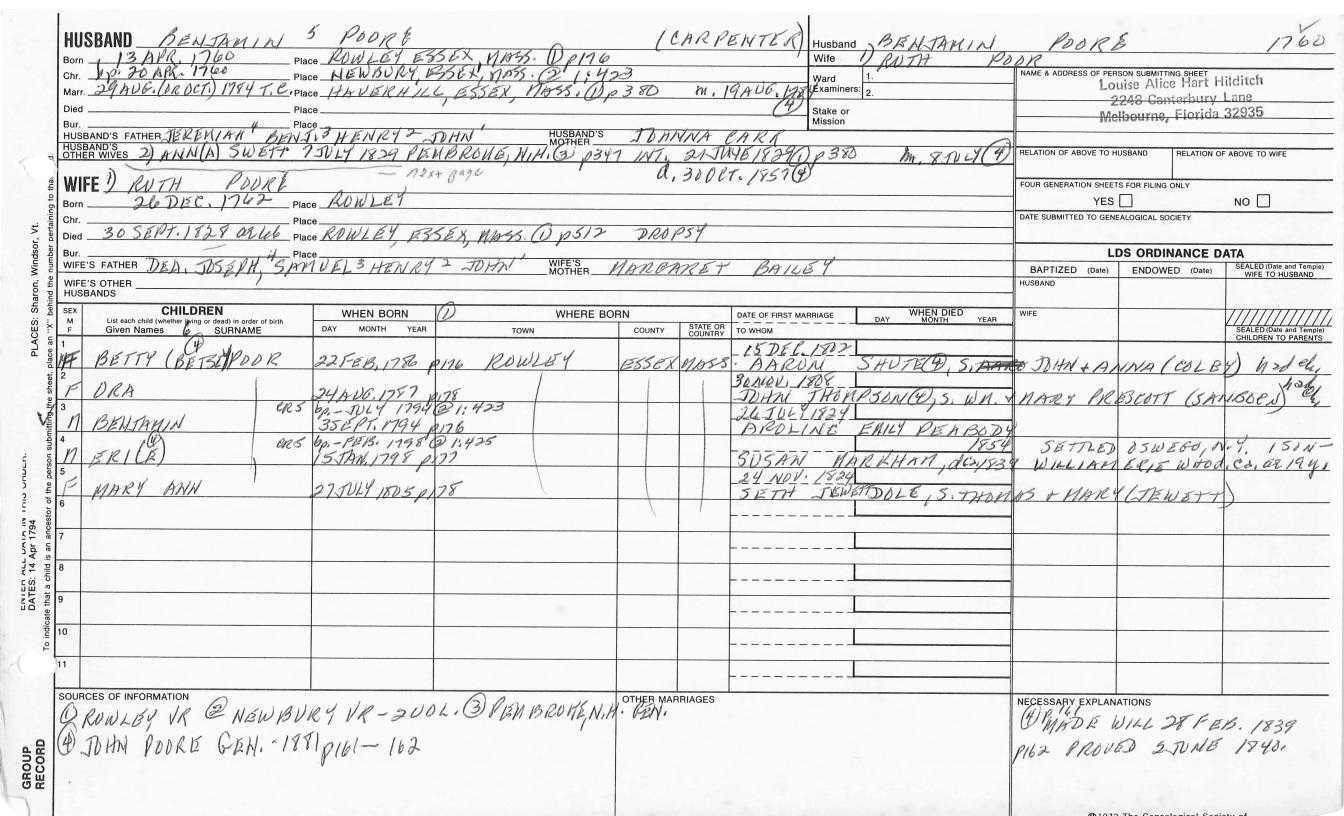 HUSBAND BENJAMIN 5 POORE (CARPENTER)
Husband BENJAMIN POORE 1760
Wife 1) RUTH POOR
Born 13 APR. 1760 Place ROWLEY ESSEX, MASS. ① p176
Chr. bp. 20 APR. 1760 Place NEWBURY, ESSEX, MASS. ② 1:423
Marr. 29 AUG. (OR OCT.) 1784 T.C. Place HAVERHILL, ESSEX, MASS. ① p380 m. 19 AUG. ④
Died Place
Bur. Place
HUSBAND'S FATHER JEREMIAH 4 BENJ. 3 HENRY 2 JOHN 1 HUSBAND'S MOTHER JOANNA CARR
HUSBAND'S OTHER WIVES 2) ANN(A) SWETT 7 JULY 1829 PEMBROKE, N.H. ③ p347 INT. 21 JUNE 1829 ① p380 m. 8 JULY ④
next page d. 30 OCT. 1857 ④
Ward Examiners: 1.
2.
Stake or Mission
NAME & ADDRESS OF PERSON SUBMITTING SHEET
Louise Alice Hart Hilditch
2248 Canterbury Lane
Melbourne, Florida 32935
RELATION OF ABOVE TO HUSBAND RELATION OF ABOVE TO WIFE
FOUR GENERATION SHEETS FOR FILING ONLY
YES NO
DATE SUBMITTED TO GENEALOGICAL SOCIETY
WIFE 1) RUTH POORE
Born 26 DEC. 1762 Place ROWLEY
Chr. Place
Died 30 SEPT. 1828 ae 66 Place ROWLEY, ESSEX, MASS. ① p512 DROPSY
Bur. Place
WIFE'S FATHER DEA. JOSEPH, 4 SAMUEL 3 HENRY 2 JOHN 1 WIFE'S MOTHER MARGARET BAILEY
WIFE'S OTHER HUSBANDS
LDS ORDINANCE DATA
BAPTIZED (Date) ENDOWED (Date) SEALED (Date and Temple) WIFE TO HUSBAND
HUSBAND
WIFE
SEALED (Date and Temple) CHILDREN TO PARENTS
SEX M F
CHILDREN
List each child (whether living or dead) in order of birth
Given Names 6 SURNAME
WHEN BORN ①
DAY MONTH YEAR
WHERE BORN
TOWN COUNTY STATE OR COUNTRY
DATE OF FIRST MARRIAGE
TO WHOM
WHEN DIED
DAY MONTH YEAR
1 15 DEC. 1802
F BETTY (BETSY) ④ POOR 22 FEB. 1786 p176 ROWLEY ESSEX MASS. AARON SHUTE ④, S. JOHN + ANNA (COLBY) had ch.
2 30 NOV. 1808
F ORA 24 AUG. 1787 p178 JOHN THOMPSON ④, S. WM. + MARY PRESCOTT (SANBORN) had ch.
3 CR5 bp. - JULY 1794 ② 1:423 26 JULY 1824
M BENJAMIN 3 SEPT. 1794 p176 AROLINE EMILY PEABODY
4 CR5 bp. - FEB. 1798 ② 1:425 1854 SETTLED OSWEGO, N.Y. 1 SON-
M ERI(E) ④ 15 JAN. 1798 p177 SUSAN MARKHAM, WILLIAM ERIE
5 24 NOV. 1824
F MARY ANN 27 JULY 1805 p178 SETH JEWETT DOLE, S. THOMAS + MARY (JEWETT)
6
7
8
9
10
11
SOURCES OF INFORMATION
① ROWLEY VR ② NEWBURY VR - 2 VOL. ③ PEMBROKE, N.H. GEN.
④ JOHN POORE GEN. - 1881 p161 - 162
OTHER MARRIAGES
NECESSARY EXPLANATIONS
④ p.161 MADE WILL 28 FEB. 1839
p162 PROVED 2 JUNE 1840.
PLACES: Sharon, Windsor, Vt.
ENTER ALL DATA IN THIS ORDER:
DATES: 14 Apr 1794
To indicate that a child is an ancestor of the person submitting the sheet, place an "X" behind the number pertaining to that
GROUP RECORD